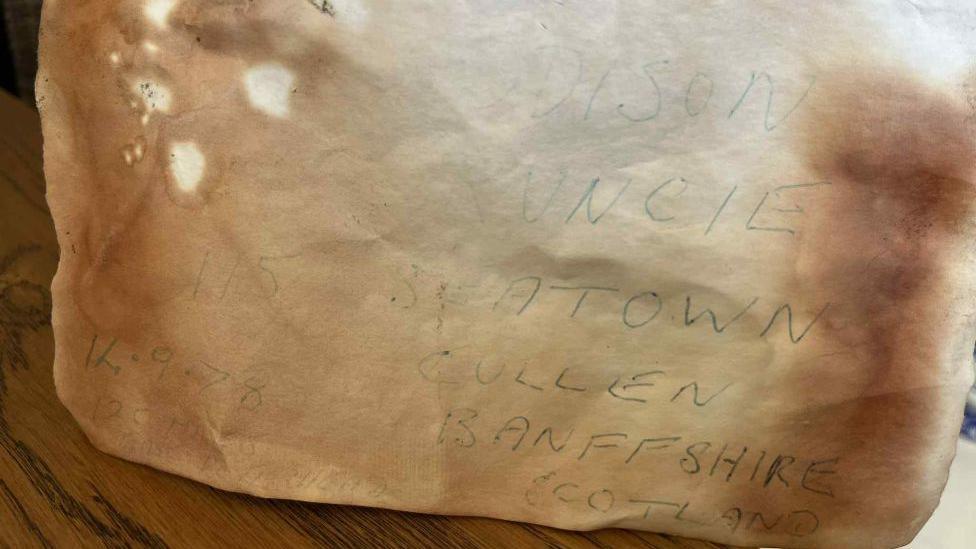 DISON
UNCIE
115 SEATOWN
CULLEN
BANFFSHIRE
SCOTLAND
12.9.78